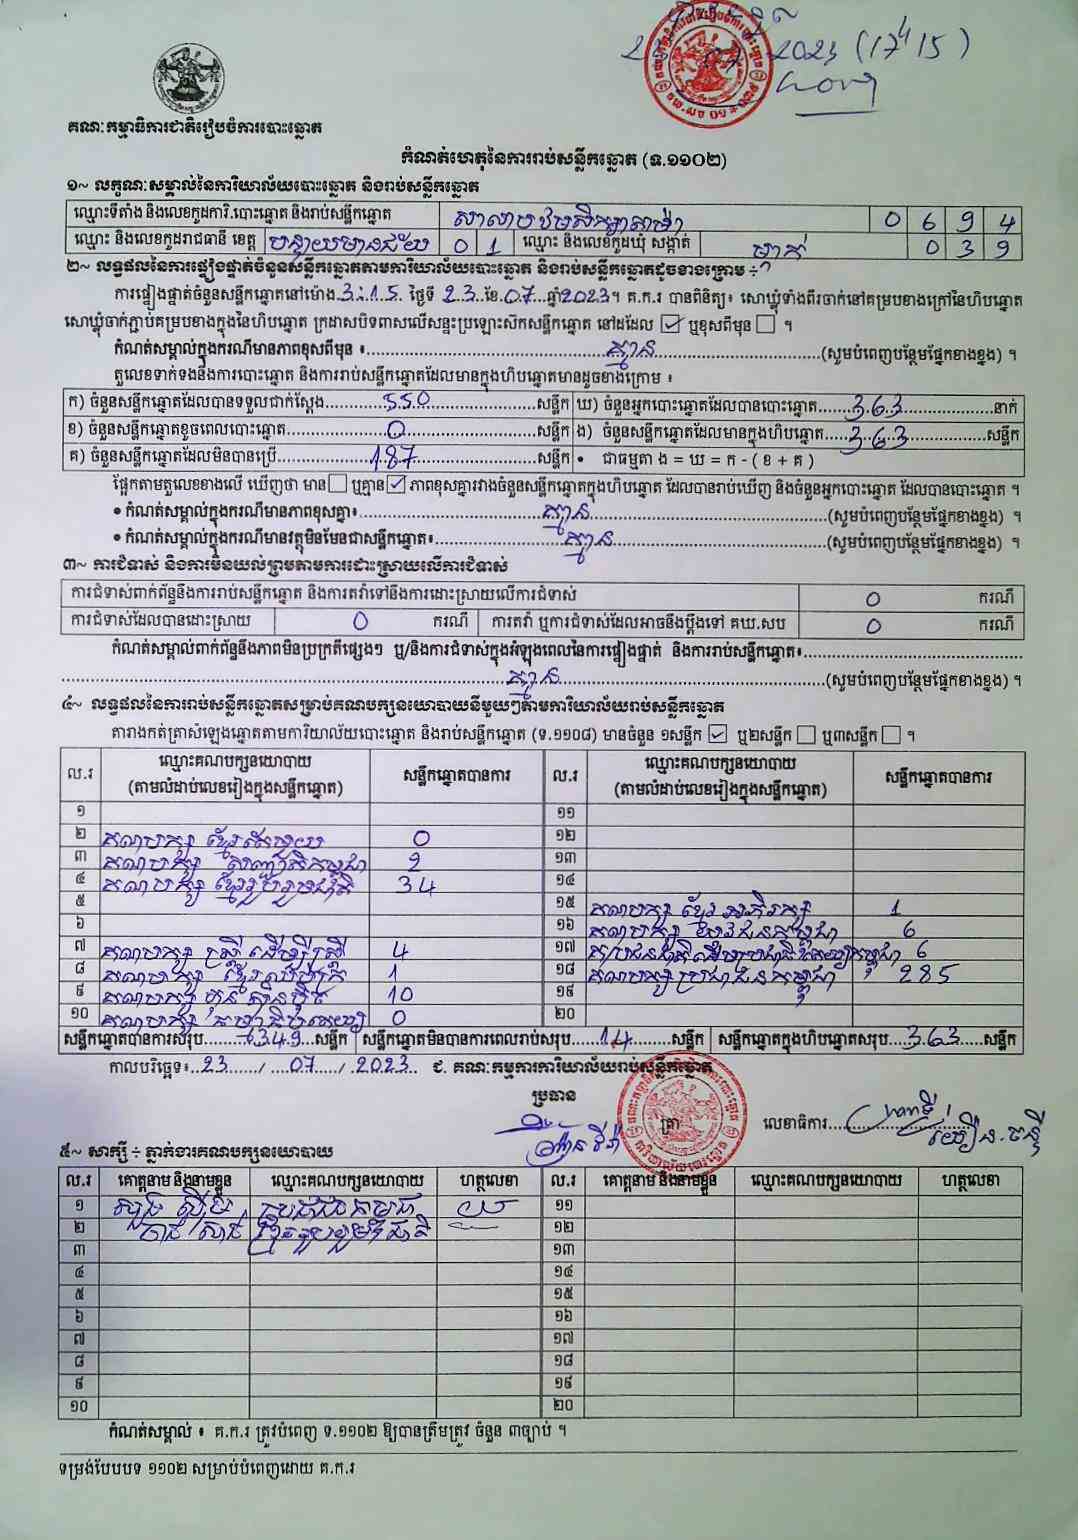 2023 (17h15)
គណៈកម្មាធិការជាតិរៀបចំការបោះឆ្នោត
កំណត់ហេតុនៃការរាប់សន្លឹកឆ្នោត (ទ.១១០២)
១~ លក្ខណៈសម្គាល់នៃការិយាល័យបោះឆ្នោត និងរាប់សន្លឹកឆ្នោត
ឈ្មោះទីតាំង និងលេខកូដការិ.បោះឆ្នោត និងរាប់សន្លឹកឆ្នោត សាលាបឋមសិក្សា 0 6 9 4
ឈ្មោះ និងលេខកូដរាជធានី ខេត្ត បន្ទាយមានជ័យ 0 1 ឈ្មោះ និងលេខកូដឃុំ សង្កាត់ ម្កាក់ 0 3 9
២~ លទ្ធផលនៃការផ្ទៀងផ្ទាត់ចំនួនសន្លឹកឆ្នោតតាមការិយាល័យបោះឆ្នោត និងរាប់សន្លឹកឆ្នោតដូចខាងក្រោម ÷
ការផ្ទៀងផ្ទាត់ចំនួនសន្លឹកឆ្នោតនៅម៉ោង 3:15 ថ្ងៃទី 23 ខែ 07 ឆ្នាំ 2023។ គ.ក.រ បានពិនិត្យ៖ សោឃ្លុំទាំងពីរចាក់នៅគម្របខាងក្រៅនៃហិបឆ្នោត
សោឃ្លុំចាក់ភ្ជាប់គម្របខាងក្នុងនៃហិបឆ្នោត ក្រដាសបិទពាសលើសន្ទះប្រឡោះស៊កសន្លឹកឆ្នោត នៅដដែល ☑ ឬខុសពីមុន ☐ ។
កំណត់សម្គាល់ក្នុងករណីមានភាពខុសពីមុន ៖ គ្មាន (សូមបំពេញបន្ថែមផ្នែកខាងខ្នង) ។
តួលេខទាក់ទងនឹងការបោះឆ្នោត និងការរាប់សន្លឹកឆ្នោតដែលមានក្នុងហិបឆ្នោតមានដូចខាងក្រោម ៖
ក) ចំនួនសន្លឹកឆ្នោតដែលបានទទួលជាក់ស្តែង 550 សន្លឹក ឃ) ចំនួនអ្នកបោះឆ្នោតដែលបានបោះឆ្នោត 363 នាក់
ខ) ចំនួនសន្លឹកឆ្នោតខូចពេលបោះឆ្នោត 0 សន្លឹក ង) ចំនួនសន្លឹកឆ្នោតដែលមានក្នុងហិបឆ្នោត 363 សន្លឹក
គ) ចំនួនសន្លឹកឆ្នោតដែលមិនបានប្រើ 187 សន្លឹក • ជាធម្មតា ង = ឃ = ក - ( ខ + គ )
ផ្អែកតាមតួលេខខាងលើ ឃើញថា មាន ☐ ឬគ្មាន ☑ ភាពខុសគ្នារវាងចំនួនសន្លឹកឆ្នោតក្នុងហិបឆ្នោត ដែលបានរាប់ឃើញ និងចំនួនអ្នកបោះឆ្នោត ដែលបានបោះឆ្នោត ។
• កំណត់សម្គាល់ក្នុងករណីមានភាពខុសគ្នា៖ គ្មាន (សូមបំពេញបន្ថែមផ្នែកខាងខ្នង) ។
• កំណត់សម្គាល់ក្នុងករណីមានវត្ថុមិនមែនជាសន្លឹកឆ្នោត៖ គ្មាន (សូមបំពេញបន្ថែមផ្នែកខាងខ្នង) ។
៣~ ការជំទាស់ និងការមិនយល់ព្រមតាមការដោះស្រាយលើការជំទាស់
ការជំទាស់ពាក់ព័ន្ធនឹងការរាប់សន្លឹកឆ្នោត និងការតវ៉ាទៅនឹងការដោះស្រាយលើការជំទាស់ 0 ករណី
ការជំទាស់ដែលបានដោះស្រាយ 0 ករណី ការតវ៉ា ឬការជំទាស់ដែលអាចនឹងប្តឹងទៅ គឃ.សប 0 ករណី
កំណត់សម្គាល់ពាក់ព័ន្ធនឹងភាពមិនប្រក្រតីផ្សេងៗ ឬ/និងការជំទាស់ក្នុងអំឡុងពេលនៃការផ្ទៀងផ្ទាត់ និងការរាប់សន្លឹកឆ្នោត៖
គ្មាន (សូមបំពេញបន្ថែមផ្នែកខាងខ្នង) ។
៤~ លទ្ធផលនៃការរាប់សន្លឹកឆ្នោតសម្រាប់គណបក្សនយោបាយនីមួយៗតាមការិយាល័យរាប់សន្លឹកឆ្នោត
តារាងកត់ត្រាសំឡេងឆ្នោតតាមការិយាល័យបោះឆ្នោត និងរាប់សន្លឹកឆ្នោត (ទ.១១០៨) មានចំនួន ១សន្លឹក ☑ ឬ២សន្លឹក ☐ ឬ៣សន្លឹក ☐ ។
ល.រ ឈ្មោះគណបក្សនយោបាយ (តាមលំដាប់លេខរៀងក្នុងសន្លឹកឆ្នោត) សន្លឹកឆ្នោតបានការ ល.រ ឈ្មោះគណបក្សនយោបាយ (តាមលំដាប់លេខរៀងក្នុងសន្លឹកឆ្នោត) សន្លឹកឆ្នោតបានការ
១ ១១
២ គណបក្ស ខ្មែរតែមួយ 0 ១២
៣ គណបក្ស សញ្ជាតិកម្ពុជា 2 ១៣
៤ គណបក្ស ខ្មែររួបរួមជាតិ 34 ១៤
៥ ១៥ គណបក្ស ខ្មែរ អភិរក្ស 1
៦ ១៦ គណបក្ស យុវជនកម្ពុជា 6
៧ គណបក្ស ស្ត្រី ដើម្បីស្ត្រី 4 ១៧ 6
៨ គណបក្ស 1 ១៨ គណបក្ស ប្រជាជនកម្ពុជា 285
៩ គណបក្ស 10 ១៩
១០ គណបក្ស 0 ២០
សន្លឹកឆ្នោតបានការសរុប 349 សន្លឹក សន្លឹកឆ្នោតមិនបានការពេលរាប់សរុប 14 សន្លឹក សន្លឹកឆ្នោតក្នុងហិបឆ្នោតសរុប 363 សន្លឹក
កាលបរិច្ឆេទ៖ 23 / 07 / 2023 ជ. គណៈកម្មការការិយាល័យរាប់សន្លឹកឆ្នោត
ប្រធាន
ត្រា លេខាធិការ
៥~ សាក្សី ÷ ភ្នាក់ងារគណបក្សនយោបាយ
ល.រ គោត្តនាម និងនាមខ្លួន ឈ្មោះគណបក្សនយោបាយ ហត្ថលេខា ល.រ គោត្តនាម និងនាមខ្លួន ឈ្មោះគណបក្សនយោបាយ ហត្ថលេខា
១ ១១
២ ១២
៣ ១៣
៤ ១៤
៥ ១៥
៦ ១៦
៧ ១៧
៨ ១៨
៩ ១៩
១០ ២០
កំណត់សម្គាល់ ៖ គ.ក.រ ត្រូវបំពេញ ទ.១១០២ ឱ្យបានត្រឹមត្រូវ ចំនួន ៣ច្បាប់ ។
ទម្រង់បែបបទ ១១០២ សម្រាប់បំពេញដោយ គ.ក.រ